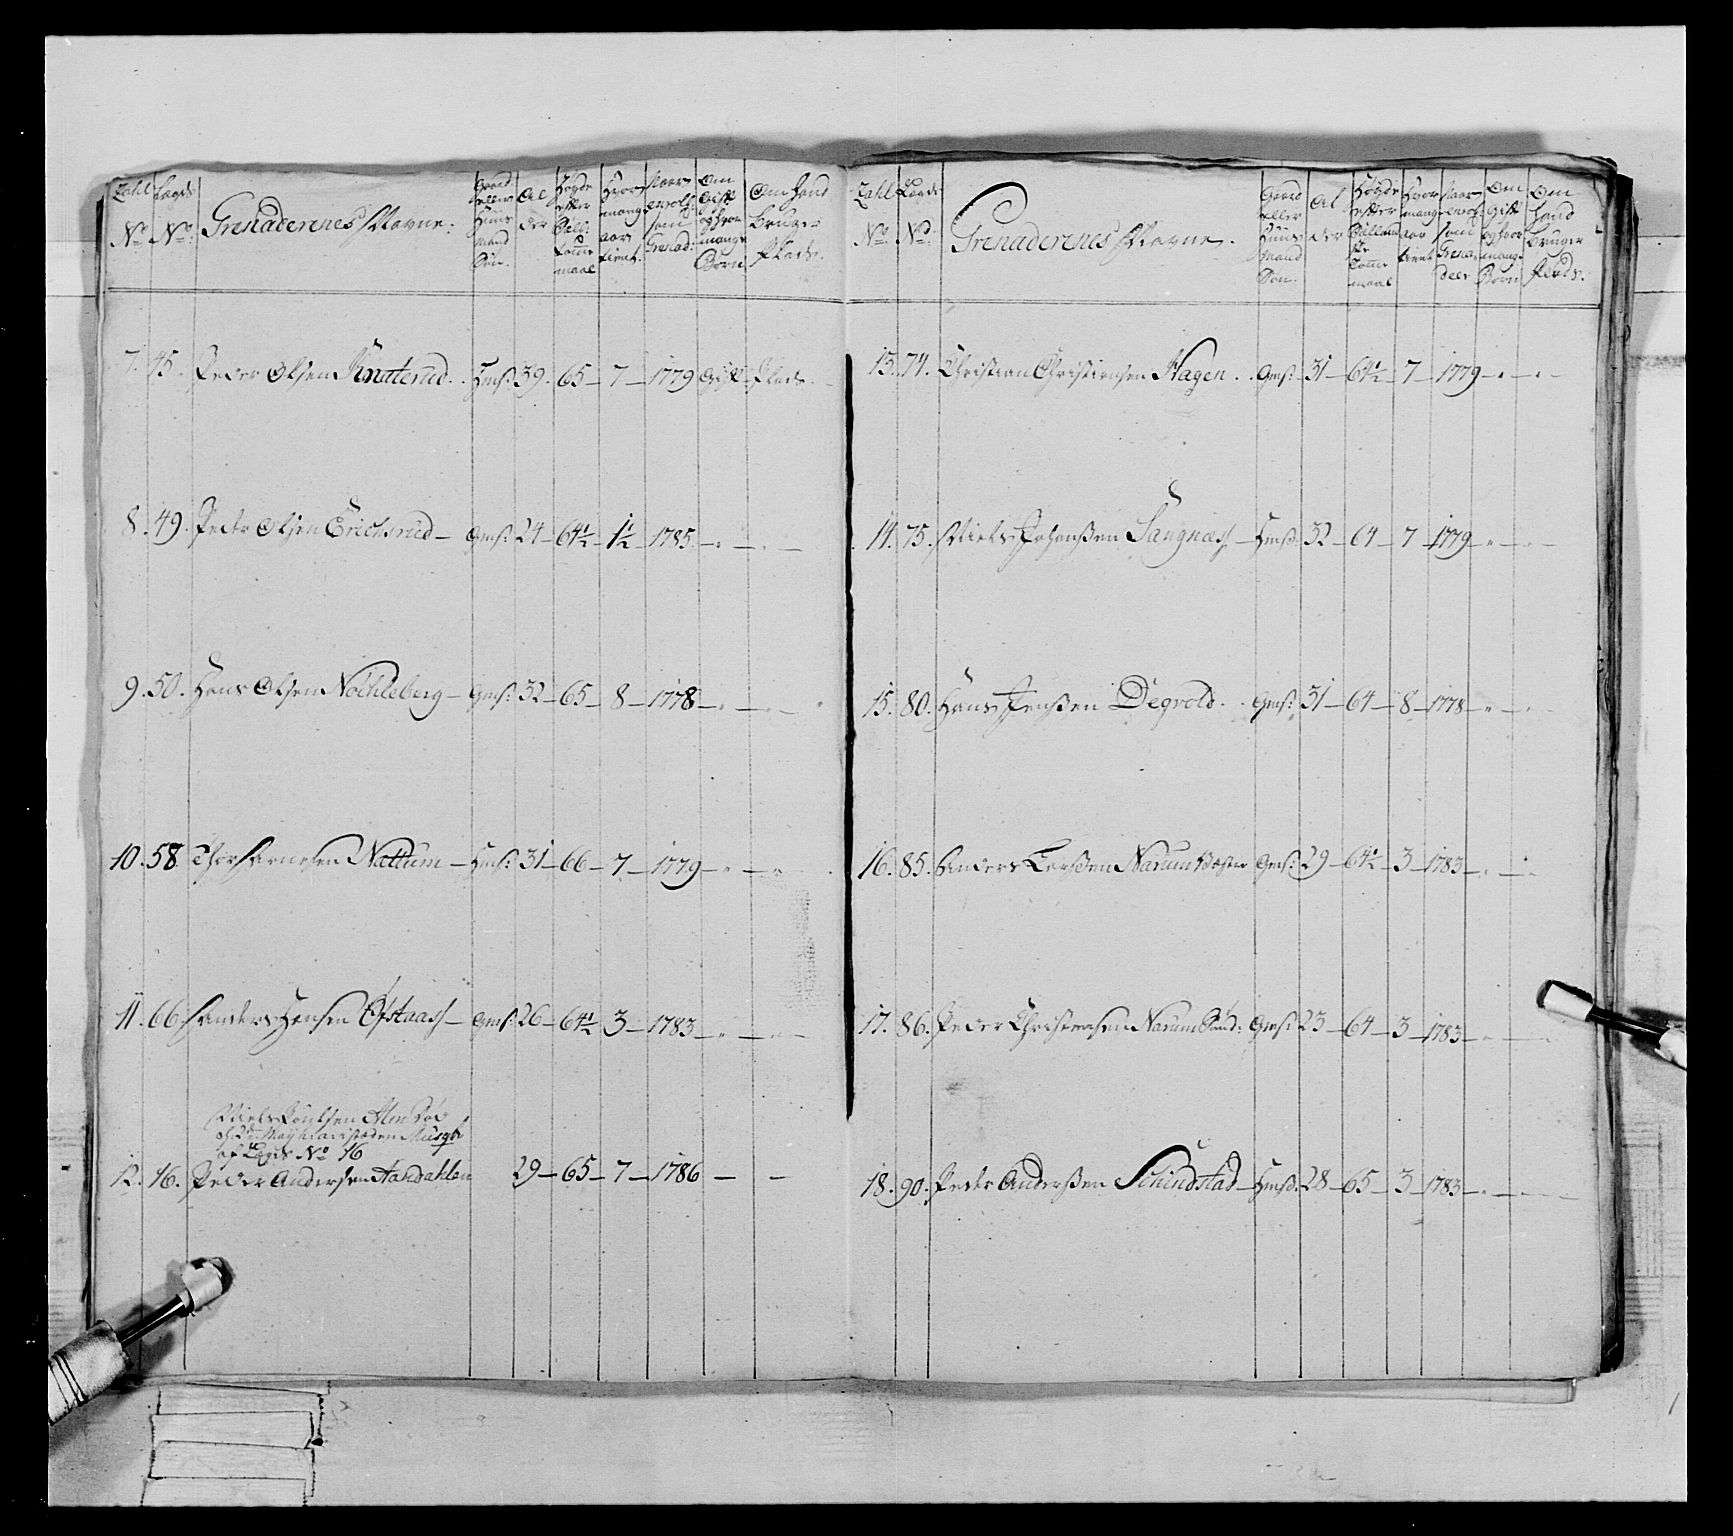 Zahl No
Lægds No
Grenaderenes Navne:
Gaard eller Huus Mand Søn.
Alder
Høyde efter Tomme maal
Hvor mange aar tient
Naar enroll: som Grenad:
Om Gift og hvor mange Børn
Om Hand bruger Plads.
7. 45. Peder Olsen Knaterud. Hmsn: 39. 65 – 7 – 1779 Gift – Plads.
8. 49. Peder Olsen Erichsrud – Gmsn: 24 – 64½ – 1½ – 1785 –
9. 50. Hans Olsen Nochleberg – Gmsn: 32 – 65 – 8 – 1778 –
10. 58 Thor Arnesen Nattum – Hmsn: 31 – 66 – 7 – 1779 –
11. 66 Anders Hansen Ofstaas – Gmsn: 26 – 64½ – 3 – 1783 –
Niels
af Lægds No 16
12. 16. Peder Andersen Aandahlen 29 – 65 – 7 – 1786 – –
Zahl No
Lægds No
Grenaderenes Navne.
Gaard eller Huus Mand Søn.
Alder
Høyde efter Tomme maal
Hvor mange aar tient
Naar enroll: som Grenadeer
Om Gift og hvor mange Børn
Om Hand bruger Plads.
13. 74. Christian Christiansen Hagen. Gmsn: 31 – 64½ – 7 – 1779 –
14. 75. Niels Johansen Sangnæs – Hmsn: 32 – 64 – 7 – 1779 –
15. 80. Hans Jensen Degvold. Gmsn: 31 – 64 – 8 – 1778 –
16. 85. Anders Larsen Narum Gmsn: 29 – 64½ – 3 – 1783 –
17. 86. Peder Christensen Narum Gmsn: 23 – 64 – 3 – 1783 –
18. 90. Peder Andersen Schindstad – Hmsn: 28 – 65 – 3 – 1783 –